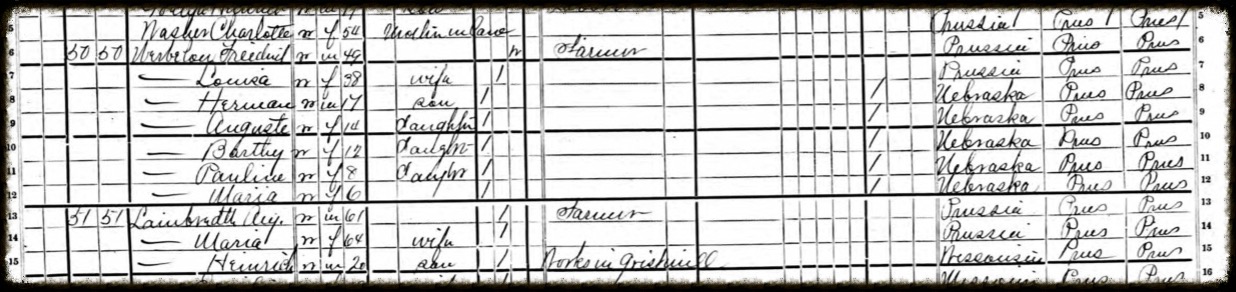 5 Washer Charlotte w f 54 Mother in Law Prussia Prus Prus 5
6 50 50 Freidrich w m 49 Farmer Prussia Prus Prus 6
7 — Louisa w f 38 wife / Prussia Prus Prus 7
8 — Herman w m 17 son / / Nebraska Prus Prus 8
9 — Auguste w f 14 daughter / / Nebraska Prus Prus 9
10 — w f 12 Daughr / / Nebraska Prus Prus 10
11 — Pauline w f 8 Daughr / / Nebraska Prus Prus 11
12 — Maria w f 6 / / Nebraska Prus Prus 12
13 51 51 w m 61 / Farmer Prussia Prus Prus 13
14 — Maria w f 64 wife / Prussia Prus Prus 14
15 — Heinrich w m 20 son / Works in Gristmill Wisconsin Prus Prus 15
16